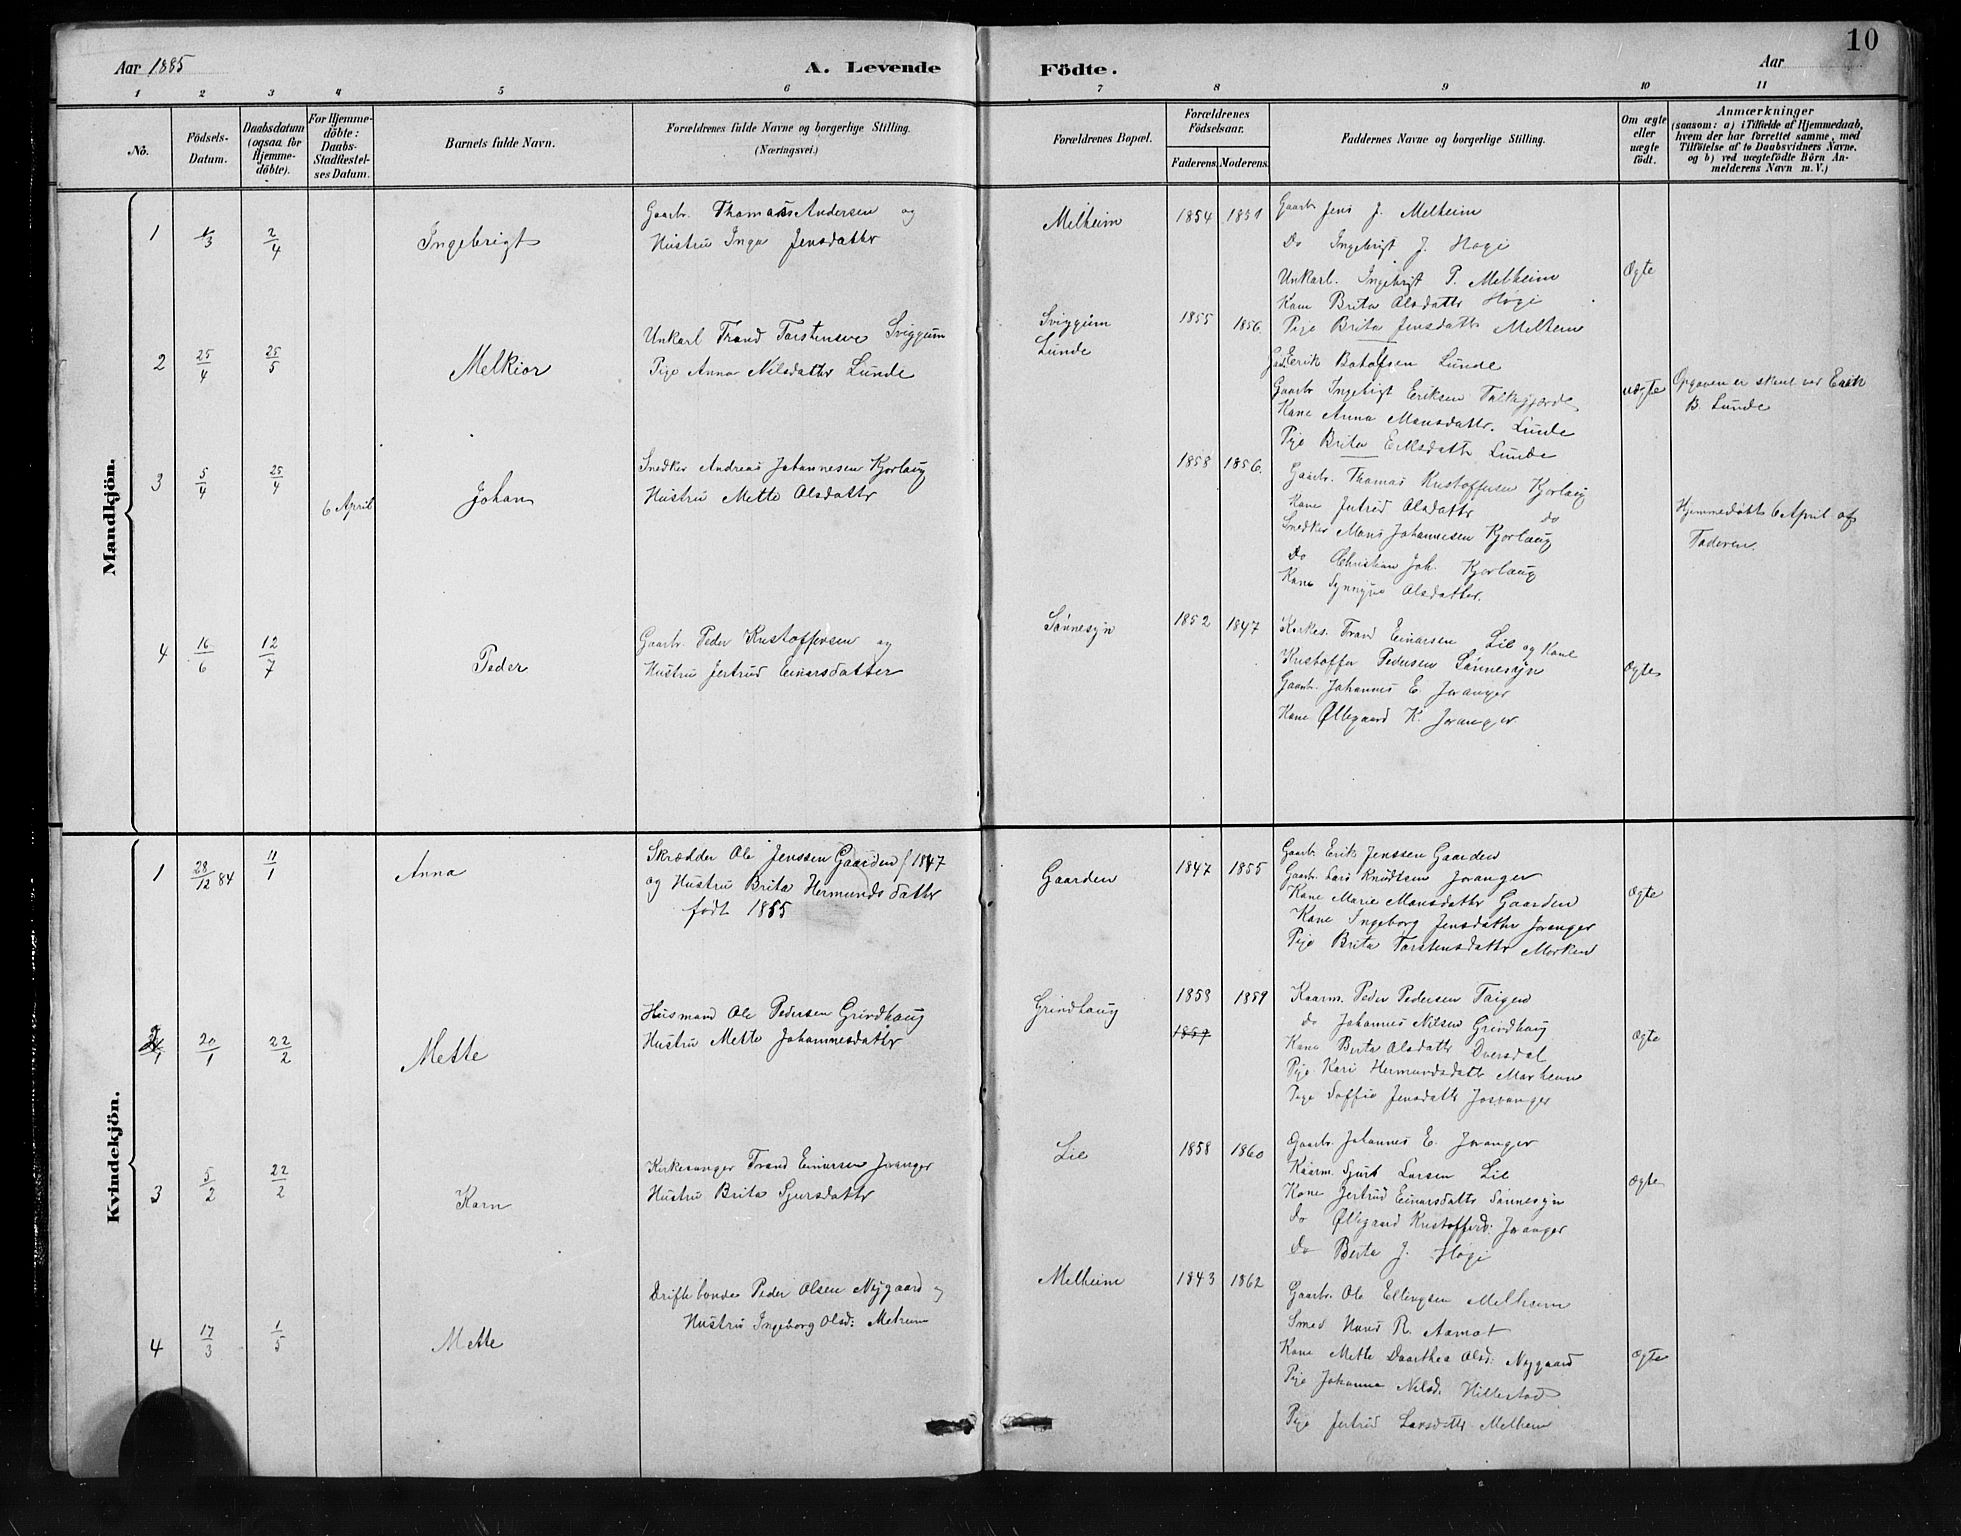 Aar 1885
A. Levende
Födte.
Aar
10
1 2 3 4 5 6 7 8 9 10 11
No.
Födsels-Datum.
Daabsdatum (ogsaa for Hjemme-döbte).
For Hjemme-döbte: Daabs-Stadfæstel-ses Datum.
Barnets fulde Navn.
Forældrenes fulde Navne og borgerlige Stilling. (Næringsvei.)
Forældrenes Bopæl.
Forældrenes Födselsaar.
Faderens. Moderens.
Faddernes Navne og borgerlige Stilling.
Om ægte eller uægte födt.
Anmærkninger
(saasom: a) i Tilfælde af Hjemmedaab, hvem der har forrettet samme, med Tilföielse af to Daabsvidners Navne, og b) ved uægtefödte Börn An-melderens Navn m. V.)
Mandkjön.
1 1/3 2/4 Ingebrigt
Gaarbr. Thomas Andersen og
Hustru Inga Jensdattr
Melheim 1854 1851
Gaarb Jens J. Melheim
Do Ingebrigt J. Høgi
Unkarl. Ingebrigt P. Melheim
Kone Brita Olsdattr Høgi
Pige Brita Jensdattr Melheim
Ægte
2 25/4 25/5 Melkior
Unkarl Trond Torstensen Sviggum
Pige Anna Nilsdattr Lunde
Sviggum
Lunde
1855 1856
Erik Botolfsen Lunde
Gaarbr Ingebrigt Eriksen
Kone Anna Monsdattr. Lunde
Pige Brita Eriksdattr Lunde
uægte
Opgaven er skeet ved Erik
B. Lunde
3 5/4 25/4 6 April Johan
Snedker Andreas Johannesen Kjørlaug
Hustru Mette Olsdattr
1858 1856.
Gaarbr. Thomas Kristoffersen Kjørlaug
Kone Jertrud Olsdattr do
Snedker Mons Johannesen Kjorlaug
Do Christian Joh. Kjorlaug
Kone Synnøve Olsdatter.
Hjemmedøbt 6 April af
Faderen.
4 16/6 12/7 Peder
Gaarbr. Peder Kristoffersen og
Hustru Jertrud Einarsdatter
Sønnesyn 1852 1847
Kirkes. Trond Einarsen Lie og Kone
Kristoffer Pedersen Sønnesyn
Gaarb. Johannes E. Joranger
Kone Øllegaard K. Joranger
Ægte
Kvindekjön.
1 28/12 84 11/1 Anna
Skrædder Ole Jenssen Gaarden f 1847
og Hustru Brita Hermundsdattr
født 1855
Gaarden 1847 1855
Gaarb. Erik Jenssen Gaarden
Gaarb. Lars Knudtsen Joranger
Kone Marie Monsdattr Gaarden
Kone Ingeborg Jensdattr Joranger
Pige Brita Torstensdattr Morken
Ægte
2 20/1 22/2 Mette
Husmand Ole Pedersen Grindhaug
Hustru Mette Johannesdattr
Grindhaug 1858 1859
1857
Kaarm. Peder Pedersen Taigen
do Johannes Nilsen Grindhaug
Kone Berta Olsdattr Dversdal
Pige Kari Hermundsdattr Marheim
Pige Soffie Jensdattr Joranger
Ægte
3 5/2 22/2 Karn
Kirkesanger Trond Einarsen Joranger
Hustru Brita Sjursdattr
Lie 1858 1860
Gaarbr. Johannes E. Joranger
Kaarm. Sjurt Larsen Lie
Kone Jertrud Einarsdattr Sønnesyn
Do Øllegaard Kristoffersd. Joranger
Do Berta J. Høgi
Ægte
4 17/3 1/5 Mette
Driftebonde Peder Olsen Nygaard og
Hustru Ingeborg Olsd:
Melheim 1843 1862
Gaarbr. Ole Ellingsen Melheim
Smed Hans R. Aamot
Kone Mette Daarthea Olsd. Nygaard
Pige Johanna Nilsd. Hillestad
Pige Jertrud Larsdattr Melheim
Ægte